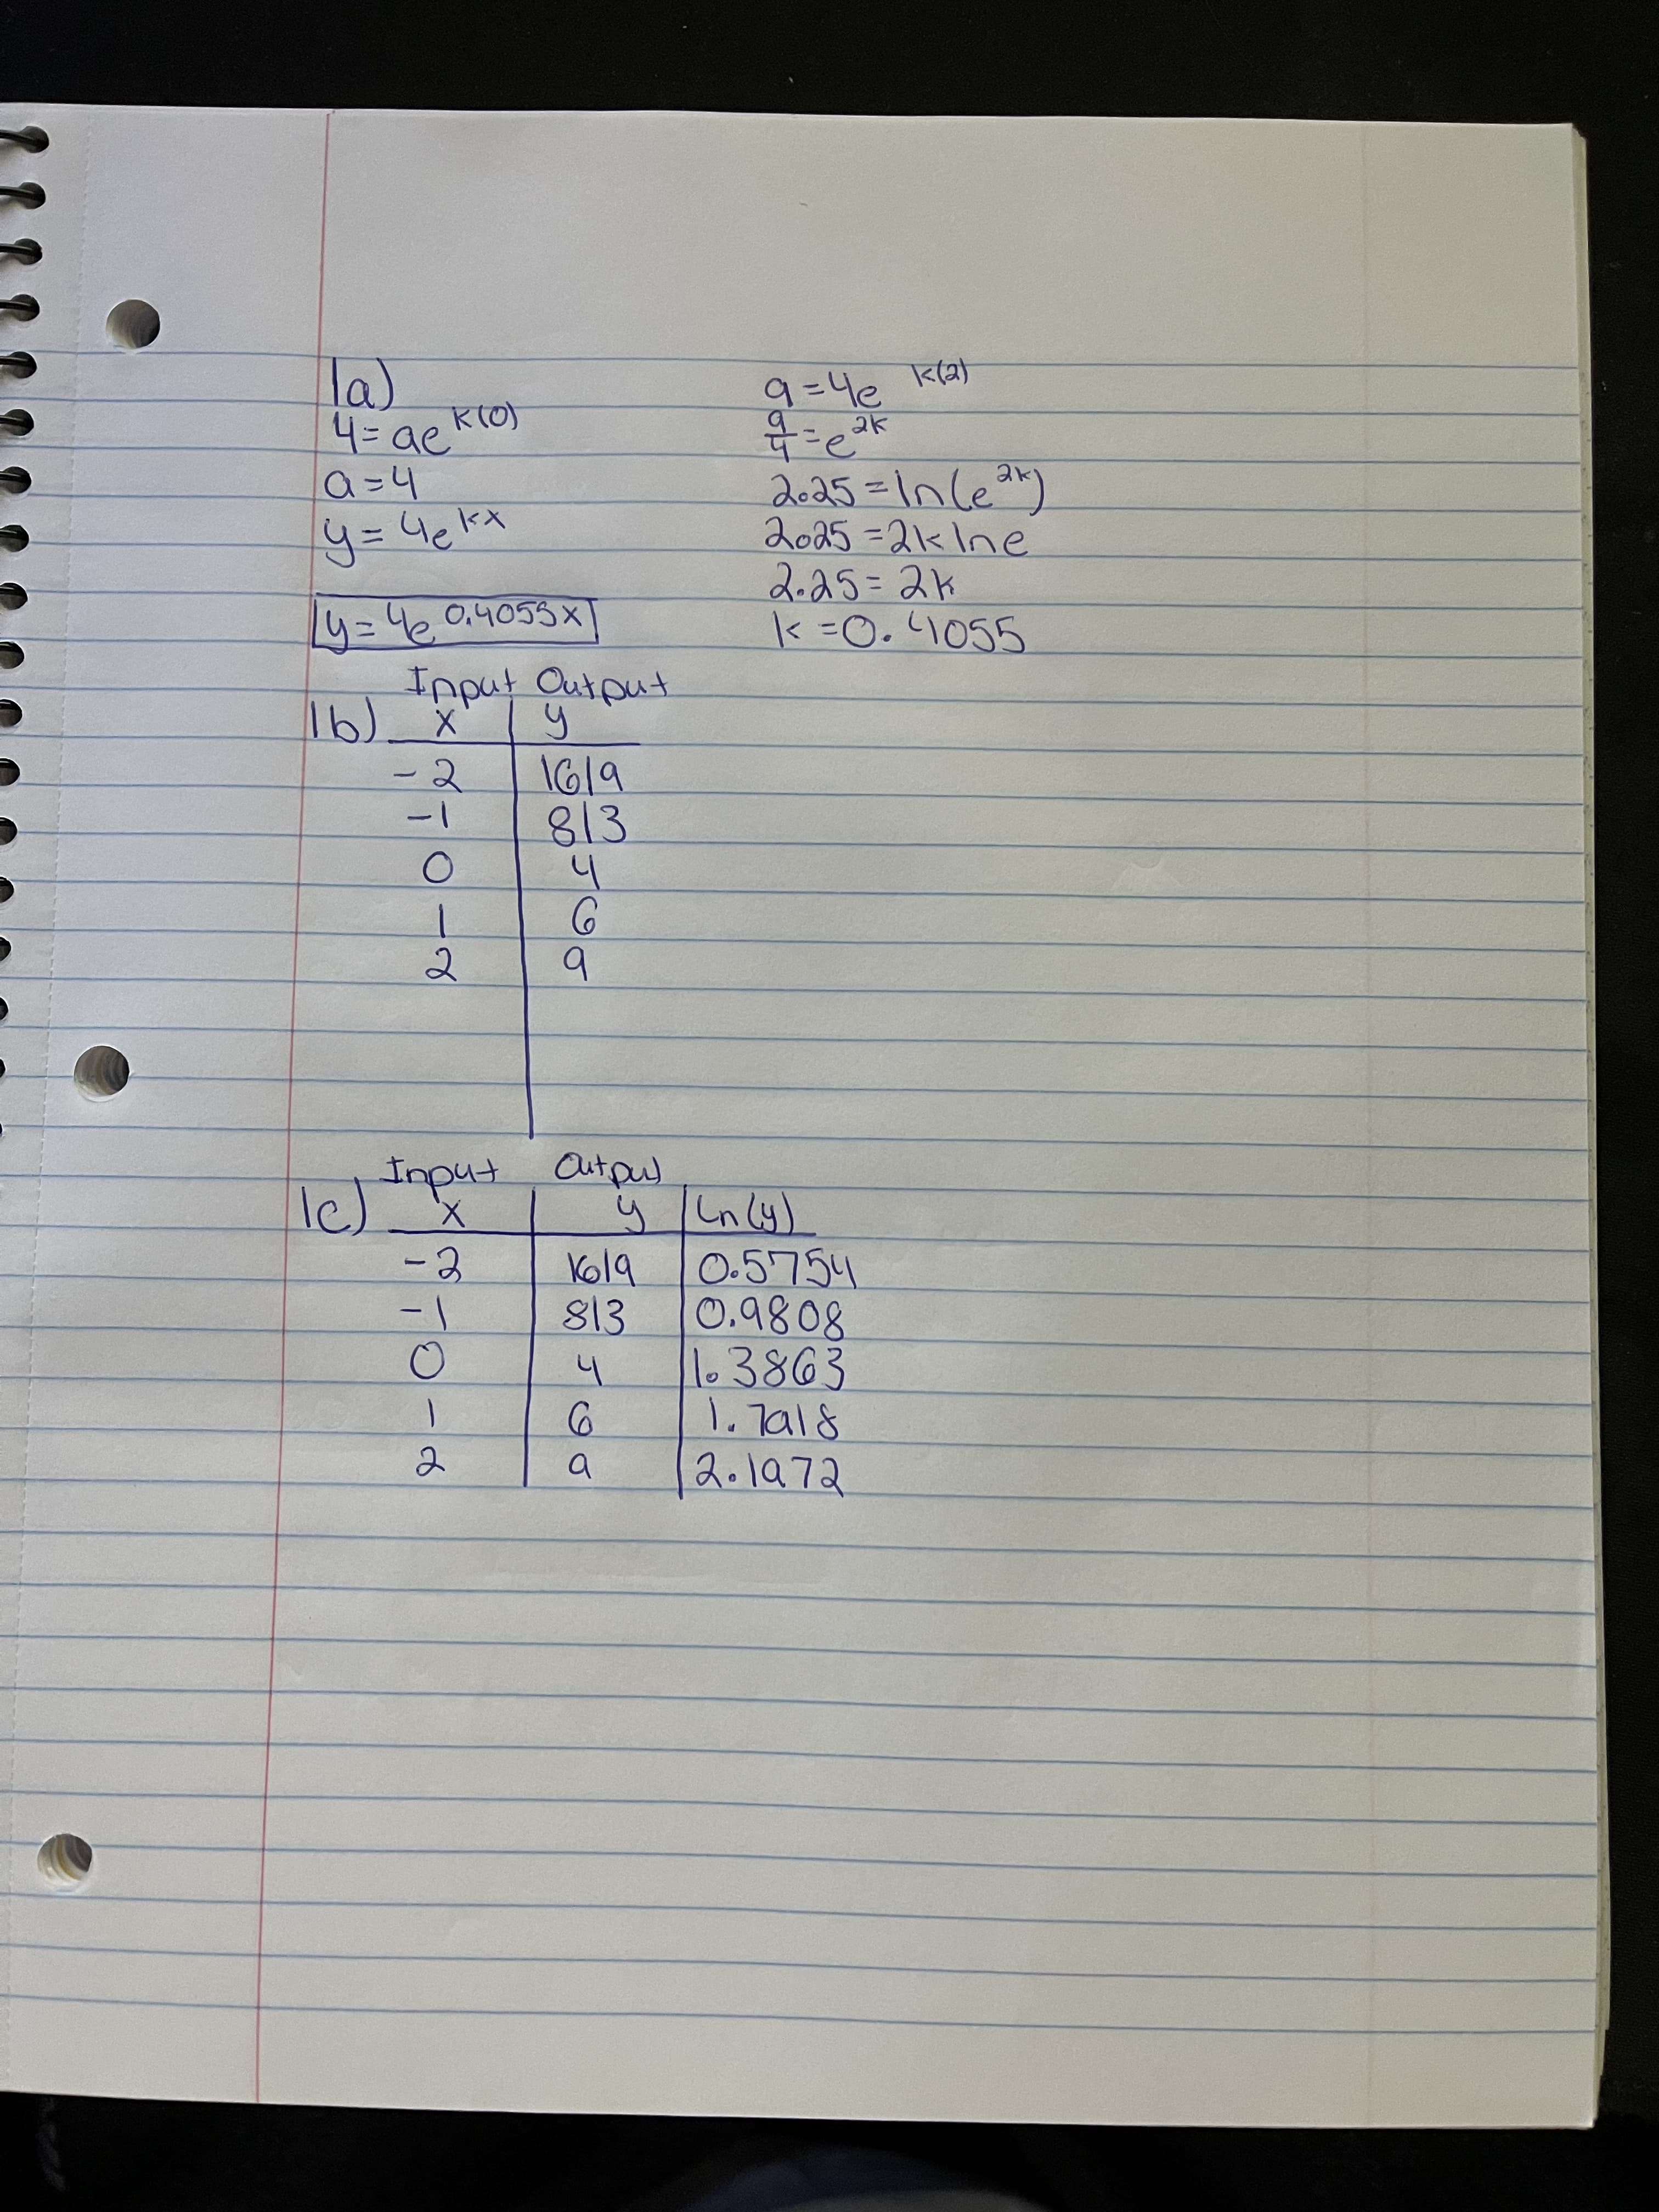 1a)
4 = ae^k(0)
a = 4
y = 4e^kx
y = 4e^0.4055x
9 = 4e^k(2)
9/4 = e^2k
2.25 = ln(e^2k)
2.25 = 2k lne
2.25 = 2k
k = 0.4055
Input Output
1b) x y
-2 16/9
-1 8/3
0 4
1 6
2 9
Input Output
1c) x y Ln(y)
-2 16/9 0.5754
-1 8/3 0.9808
0 4 1.3863
1 6 1.7918
2 9 2.1972